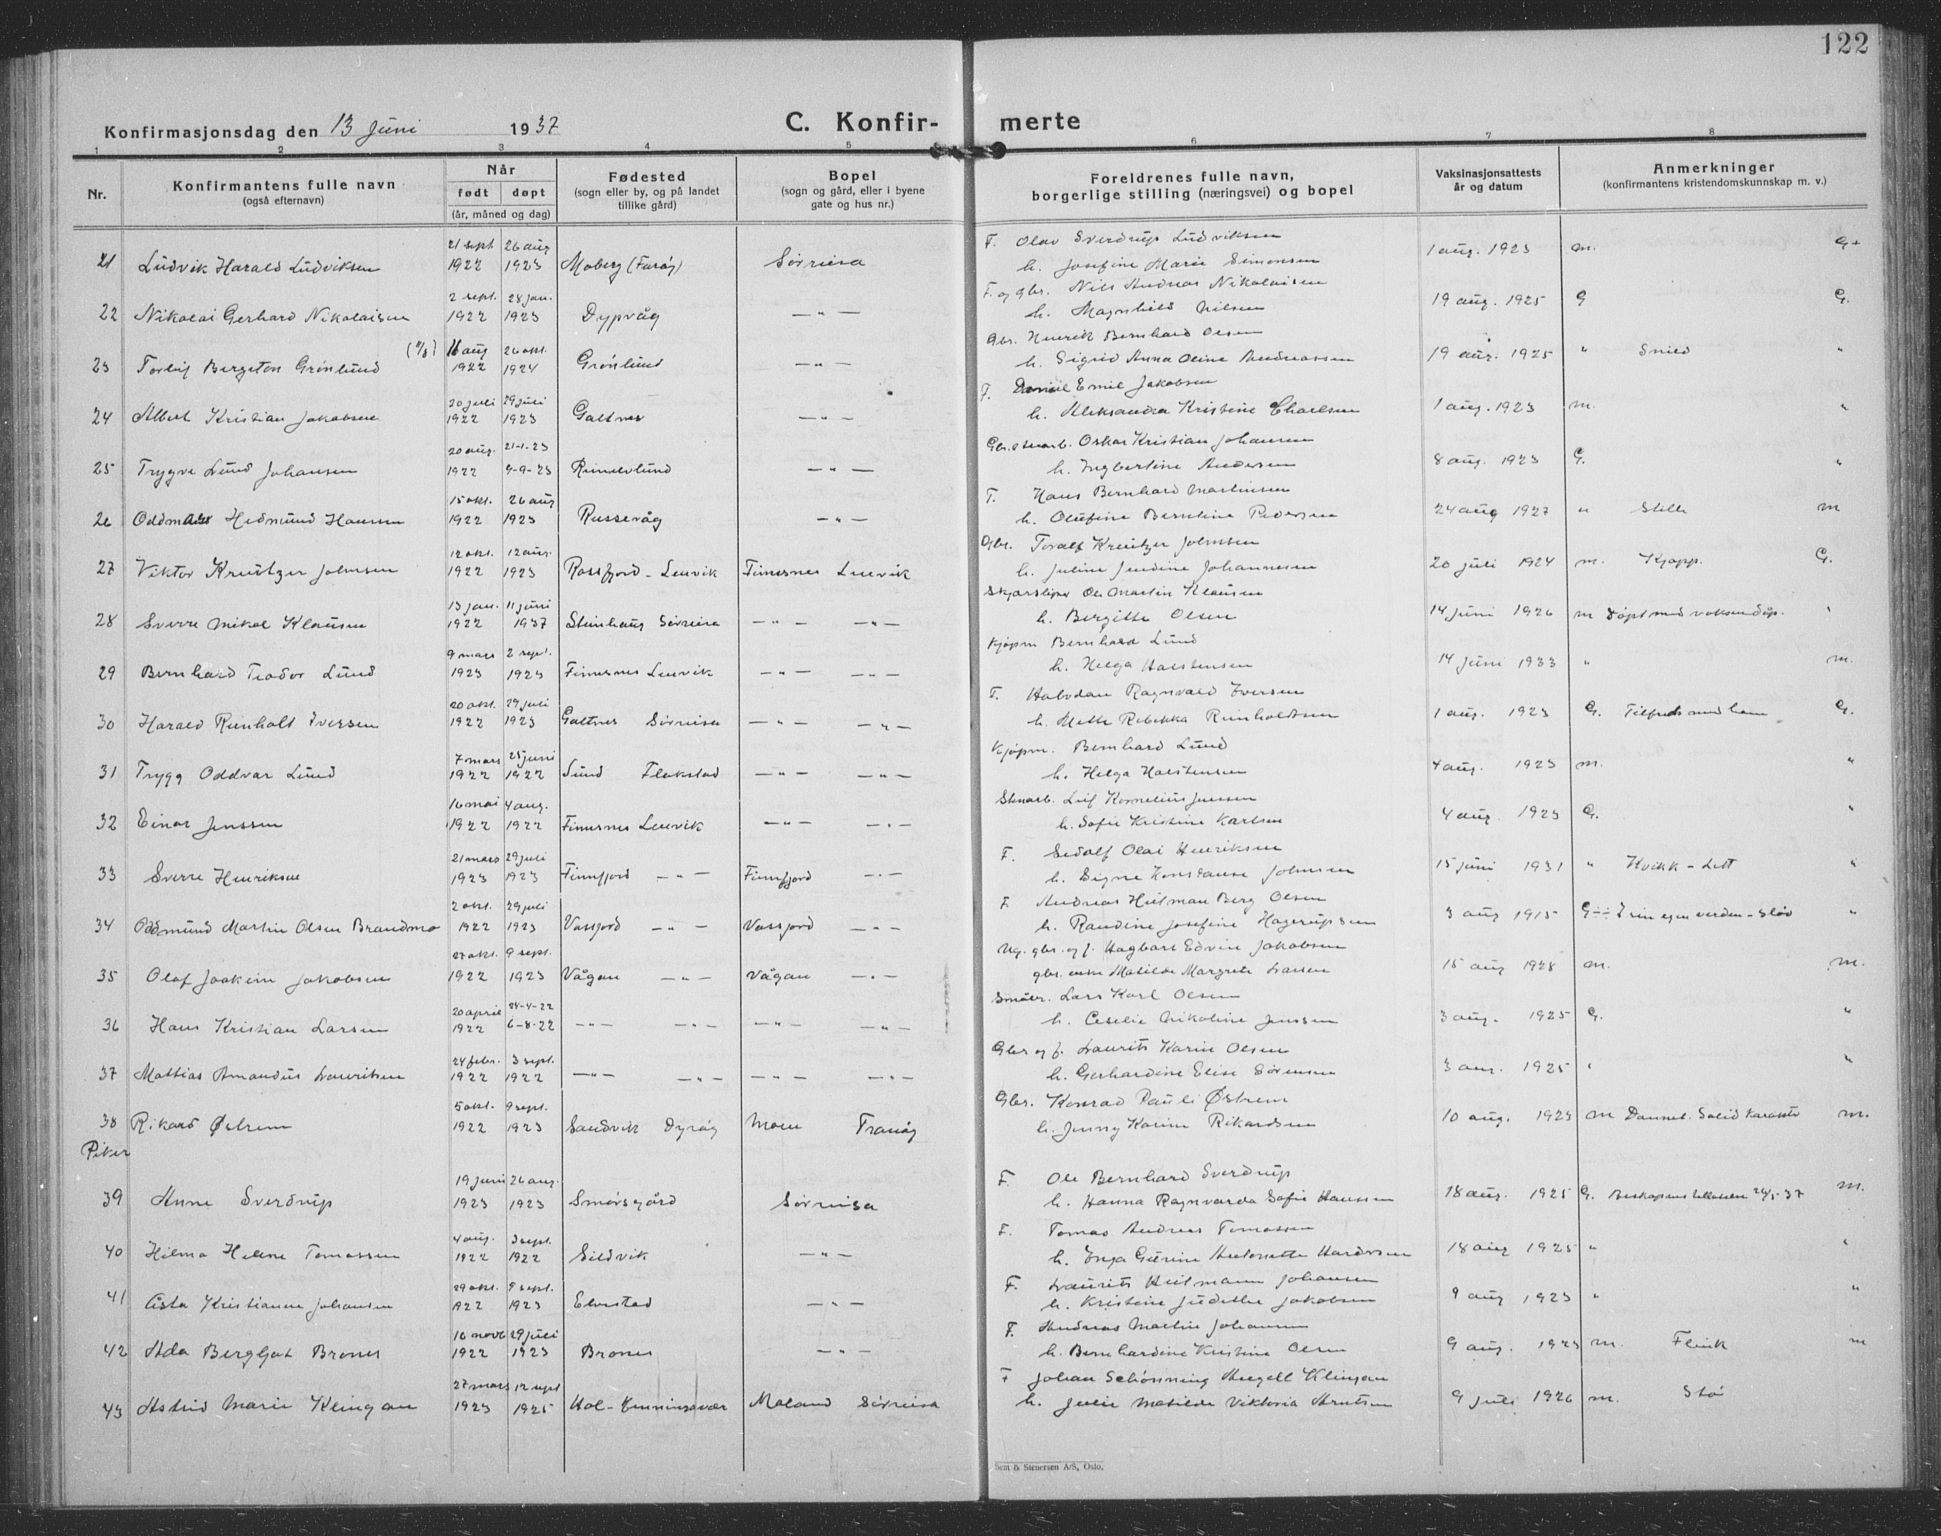 122
Konfirmasjonsdag den 13 juni 1937 C. Konfirmerte
1 2 3 4 5 6 7 8
Nr. Konfirmantens fulle navn (også efternavn) Når født døpt (år, måned og dag) Fødested (sogn eller by, og på landet tillike gård) Bopel (sogn og gård, eller i byene gate og hus nr.) Foreldrenes fulle navn, borgerlige stilling (næringsvei) og bopel Vaksinasjonsattests år og datum Anmerkninger (konfirmantens kristendomskunnskap m. v.)
21 Ludvik Harald Ludviksen 21 sept. 1922 26 aug 1923 Moberg (Farøy) Sørreisa F. Olav Sverdrup Ludviksen h. Josefine Marie Simonsen 1 aug. 1923 m. G+
22 Nikolai Gerhard Nikolaisen 2 sept. 1922 28 jan. 1923 Dypvåg — " — F. og gbr. Nils Andreas Nikolaisen h. Magnhild Nilsen 19 aug. 1925 G G.
23 Torleif Bergston Grønlund (11/8) 16 aug 1922 26 okt. 1924 Grønlund — " — Gbr. Henrik Bernhard Olsen h. Sigrid Anna Oline Andreassen 19 aug. 1925 " Snild "
24 Albert Kristian Jakobsen 20 juli 1922 29 juli 1923 Galtnes — " — F. Daniel Emil Jakobsen h. Aleksandra Kristine Charlsen 1 aug. 1923 m. "
25 Trygve Lund Johansen 20 aug. 1922 21-1-23 2-9-23 — " — Gbr. Oskar Kristian Johansen h. Ingbertine Andersen 8 aug. 1923 G. "
26 Oddmar Hedmund Hansen 15 okt. 1922 26 aug 1923 Russevåg — " — F. Hans Bernhard Martinsen h. Olufine Berntine Pedersen 24 aug 1927 " Stille m
27 Viktor Kreutzer Johnsen 12 okt. 1922 12 aug. 1923 Rossfjord - Lenvik Finnsnes Lenvik Gbr. Toralf Kreutzer Johnsen h. Juline Jendine Johannesen 20 juli 1924 m. Kjapp. G.
28 Sverre Mikal Klausen 13 jan. 1922 11 juni 1937 Steinhaug Sørreisa — " — — " — Ole Martin Klausen h. Bergitte Olsen 14 juni 1926 m Døpt med voksendåp. "
29 Bernhard Teodor Lund 9 mars 1923 2 sept. 1923 Finnsnes Lenvik — " — — " — Kjøpm Bernhard Lund h. Helga Halstensen 14 juni 1933 " m.
30 Harald Reinholt Iversen 20 okt. 1922 29 juli 1923 Galtnes Sørreisa — " — — " — F. Halvdan Ragnvald Iversen h. Mette Rebekka Reinholdtsen 1 aug. 1923 G. Tilfreds med ham G.
31 Trygg Oddvar Lund 7 mars 1922 25 juni 1922 Sund Flakstad — " — — " — Kjøpm. Bernhard Lund h. Helga Halstensen 4 aug. 1923 m. "
32 Einar Jenssen 16 mai 1922 4 aug. 1922 Finnsnes Lenvik — " — — " — Stenarb. Leif Kornelius Jenssen h. Sofie Kristine Karlsen 4 aug. 1923 G. "
33 Sverre Henriksen 21 mars 1923 29 juli 1923 Finnfjord — " — Finnfjord — " — F. Sedolf Olai Henriksen h. Signe Konstanse Johnsen 15 juni 1931 " Kvikk - Lett "
34 Oddmund Martin Olsen Brandmo 2 okt. 1922 29 juli 1923 Vassfjord — " — Vassfjord — " — F. Andreas Hilman Berg Olsen h. Randine Josefine Hagerupsen 3 aug 1915 G÷÷ I sin egen verden - sløv "
35 Olaf Joakim Jakobsen 27 okt. 1922 9 sept. 1923 Vågan — " — Vågan — " — Ug. gbr. og f. Hagbart Edvin Jakobsen gbr. enke Matilde Margrete Larsen 15 aug 1928 m. m.
36 Hans Kristian Larsen 20 april 1922 24-4-22 6-8-22 — " — — " — — " — — " — Småbr. Lars Karl Olsen h. Ceselie Nikoline Jenssen 3 aug. 1925 G. "
37 Mattias Amandus Lauritsen 24 febr. 1922 3 sept. 1922 — " — — " — — " — — " — Gbr og f. Laurits Karin Olsen h. Gerhardine Elise Sørensen 3 aug. 1925 " "
38 Rikard Østrem 5 okt. 1922 9 sept. 1923 Sandvik Dyrøy Moen Tranøy Gbr. Konrad Pauli Østrem h. Jenny Karine Rikardsen 10 aug. 1923 m Dannet. Solid karakter m.
Piker
39 Anne Sverdrup 19 juni 1923 26 aug. 1923 Smørsgård Sørreisa F. Ole Bernhard Sverdrup h. Hanna Ragnvarda Sofie Hanssen 18 aug. 1925 G. 24/5-37 m.
40 Hilma Helene Tomassen 4 aug. 1922 3 sept. 1922 Sildvik — " — F. Tomas Andreas Tomassen h. Inga Gurine Antonette Hardersen 18 aug 1925 " "
41 Asta Kristianne Johansen 29 okt. 1922 9 sept. 1923 Elvestad — " — F. Laurits Hilmann Johansen h. Kristine Judithe Jakobsen 9 aug 1923 " "
42 Ada Bergljot Brones 16 novb 1922 29 juli 1923 Brones — " — F. Andreas Martin Johansen h. Bernhardine Kristine Olsen 9 aug. 1923 m. Flink m
43 Astrid Marie Klingan 27 mars 1923 12 sept 1925 Hol- Moland Sørreisa F Johan Schønning Angell Klingan h. Julie Matilde Viktoria Arntsen 9 juli 1926 m. Stø
Sem & Stenersen A/S, Oslo.